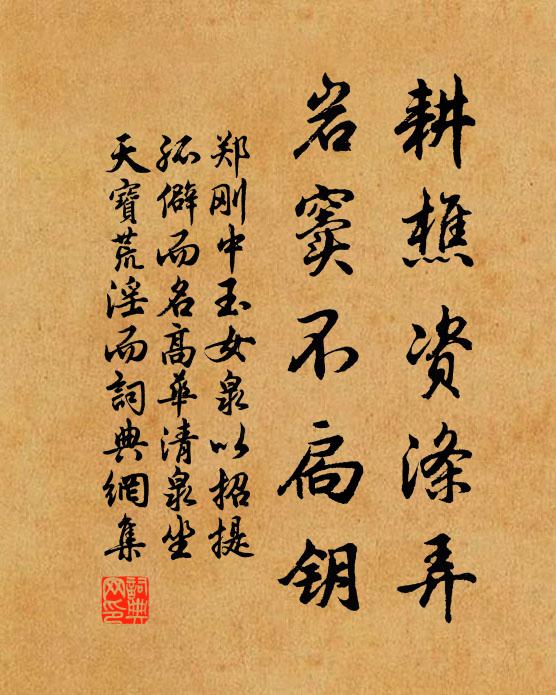 耕樵资涤弄
岩窦不扃钥
郑刚中玉女泉以招提
孤僻而名高华清泉坐
天寶荒淫而詞典網集
詞典網印